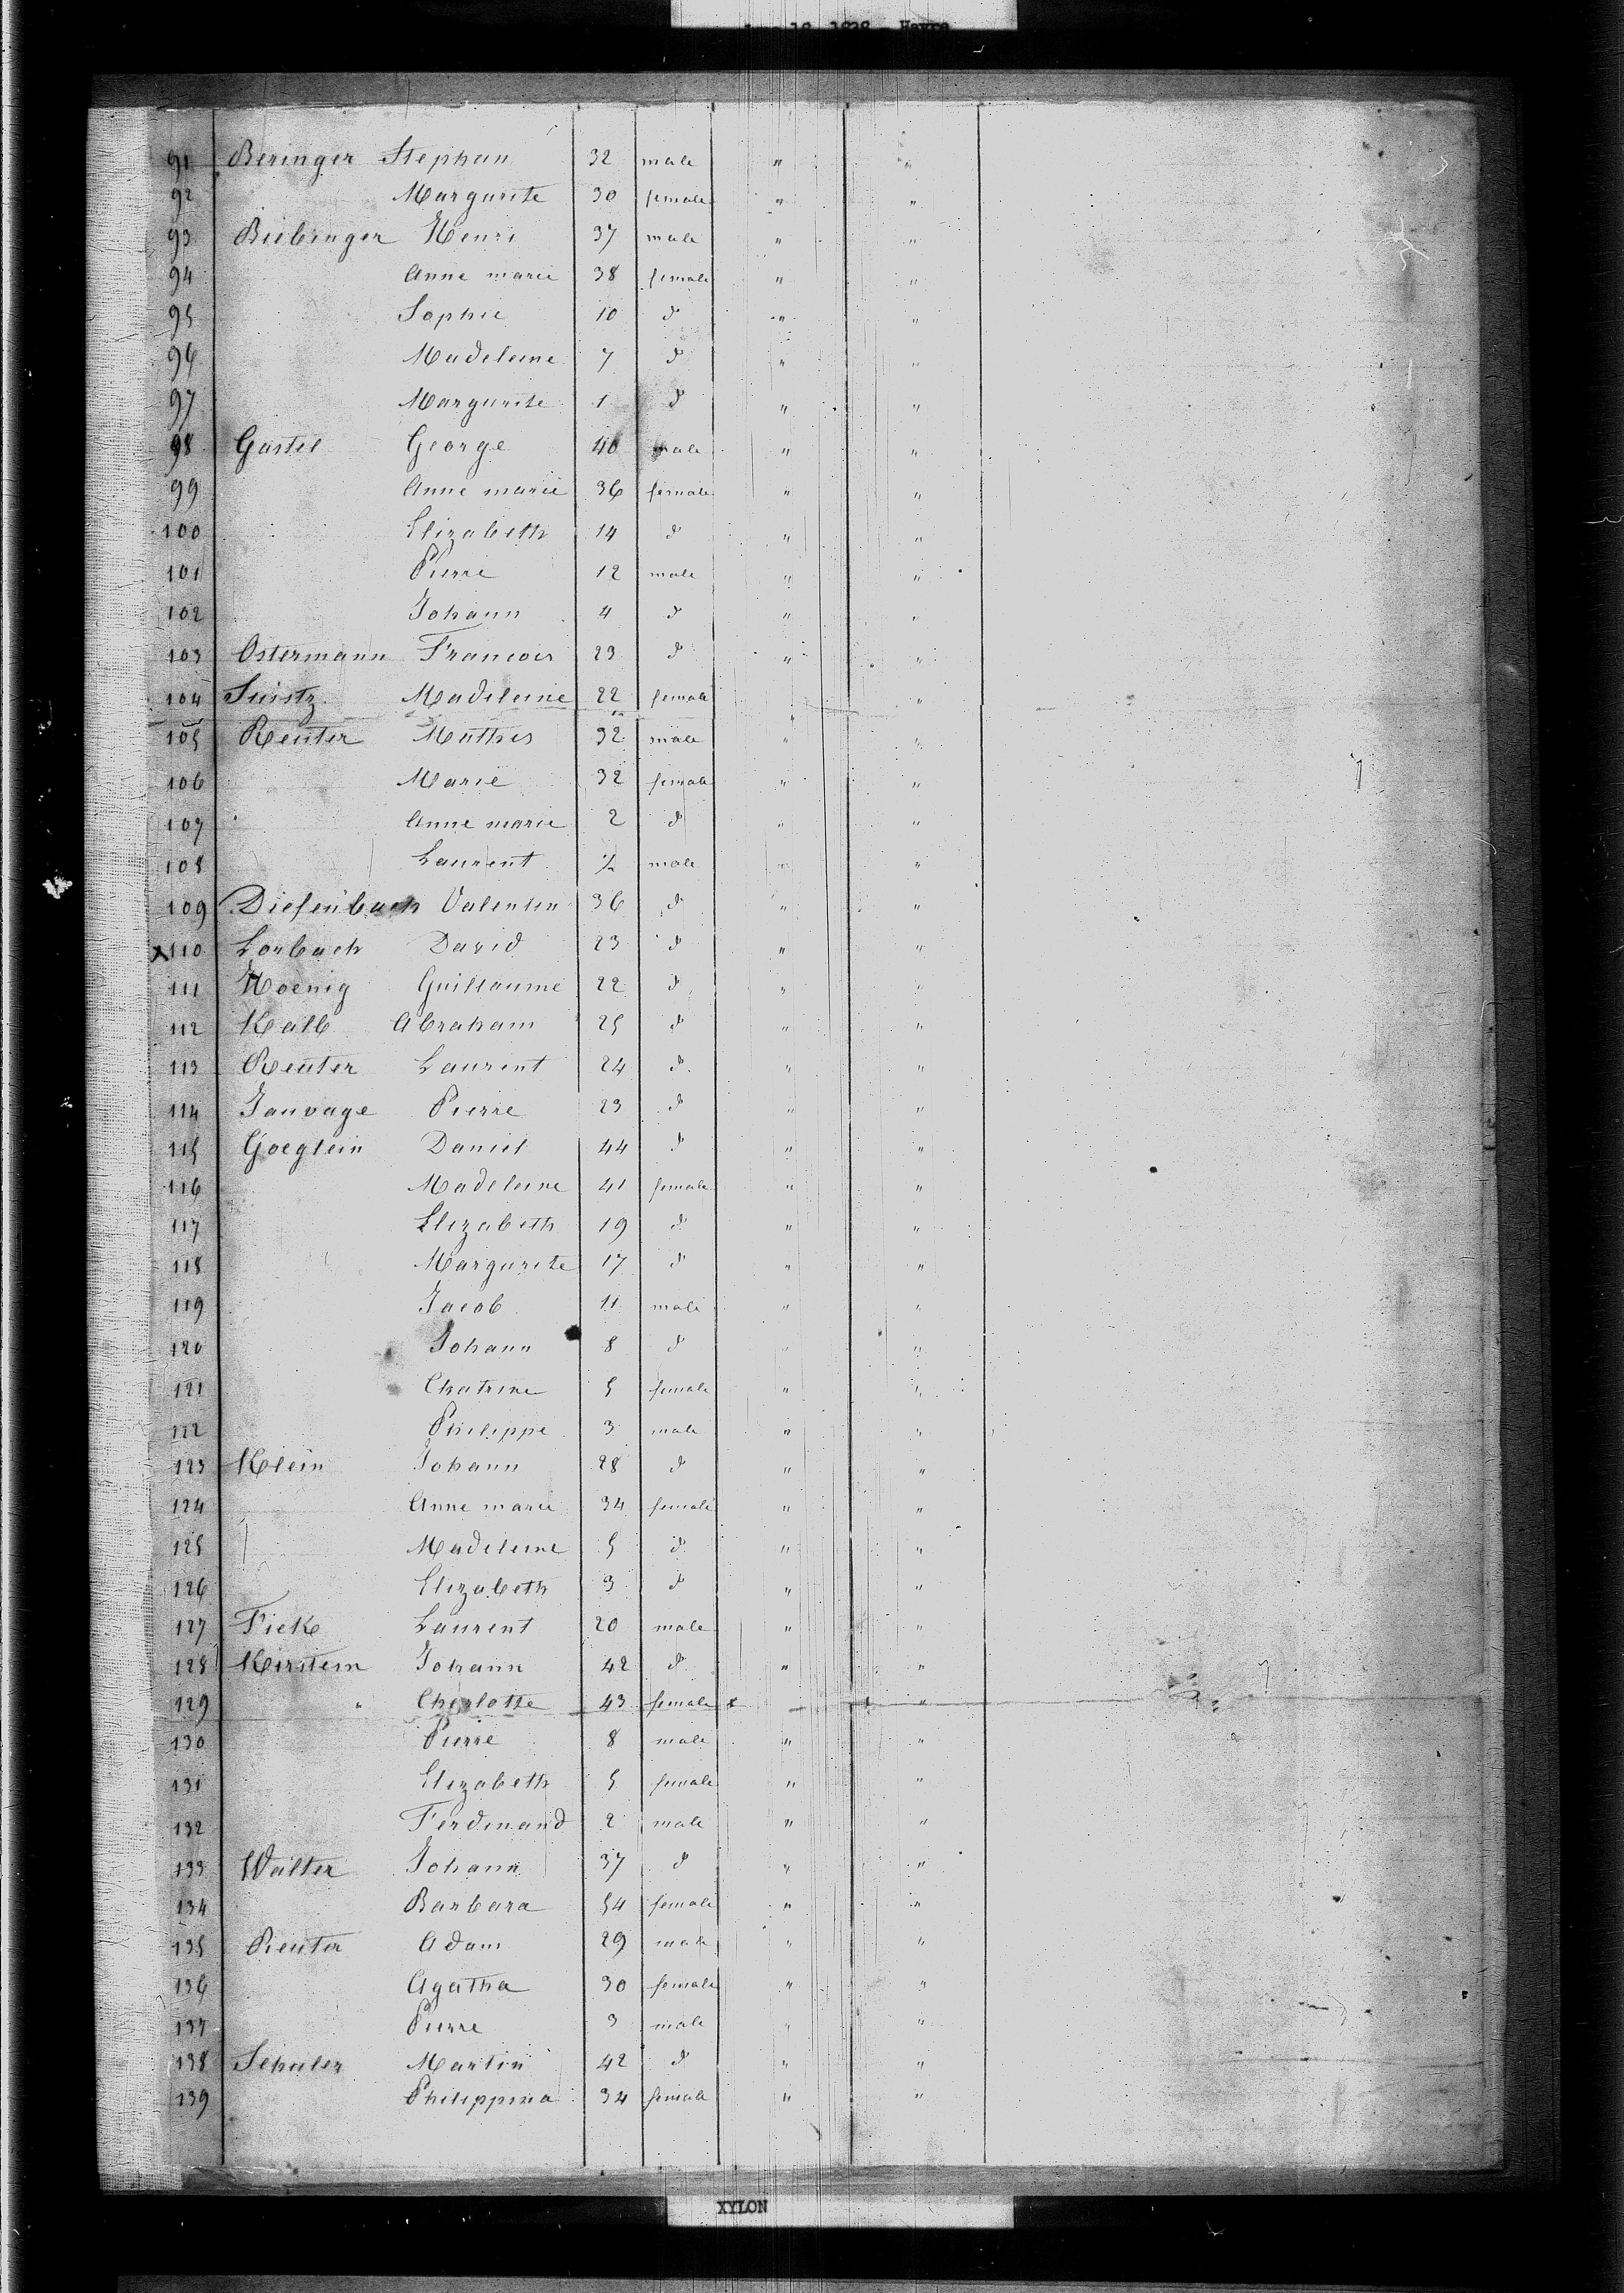 1828 - Havre
91 Beringer Stephan 32 male " "
92 Margurite 30 female " "
93 Biebinger Henri 37 male " "
94 Anne marie 38 female " "
95 Sophie 10 d " "
96 Madeleine 7 d " "
97 Margurite 1 d " "
98 Gastel George 40 male " "
99 Anne marie 36 female " "
100 Elizabeth 14 d " "
101 Pierre 12 male " "
102 Johann 4 d " "
103 Ostermann Francois 23 d " "
104 Madeleine 22 female " "
105 Reuter Mathes 32 male " "
106 Marie 32 female " "
107 Anne marie 2 d " "
108 Laurent male " "
109 Diefenbach Valentin 36 d " "
x 110 Lorbach David 23 d " "
111 Hoenig Guillaume 22 d " "
112 Kalb Abraham 25 d " "
113 Reuter Laurent 24 d " "
114 Sauvage Pierre 23 d " "
115 Goeglein Daniel 44 d " "
116 Madeleine 41 female " "
117 Elizabeth 19 d " "
118 Margurite 17 d " "
119 Jacob 11 male " "
120 Johann 8 d " "
121 Chatrine 5 female " "
122 Philippe 3 male " "
123 Klein Johann 28 d " "
124 Anne marie 34 female " "
125 Madeleine 5 d " "
126 Elizabeth 3 d " "
127 Fick Laurent 20 male " "
128 Kirstein Johann 42 d " "
129 " Charlotte 43 female " "
130 Pierre 8 male " "
131 Elizabeth 5 female " "
132 Ferdinand 2 male " "
133 Walter Johann 37 d " "
134 Barbara 54 female " "
135 Reuter Adam 29 male " "
136 Agatha 30 female " "
137 Pierre 3 male " "
138 Schuler Martin 42 d " "
139 Philippina 34 female " "
XYLON